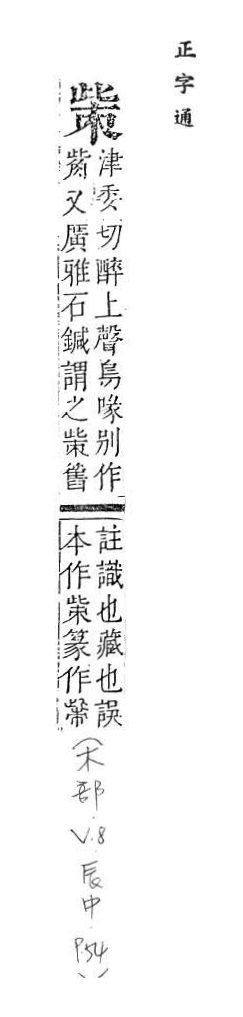 正字通
㭰
津委切醉上聲鳥喙別作
觜又廣雅石鍼謂之㭰舊
註識也藏也誤
本作㭰篆作
(木部 V.8 辰中 P.54)